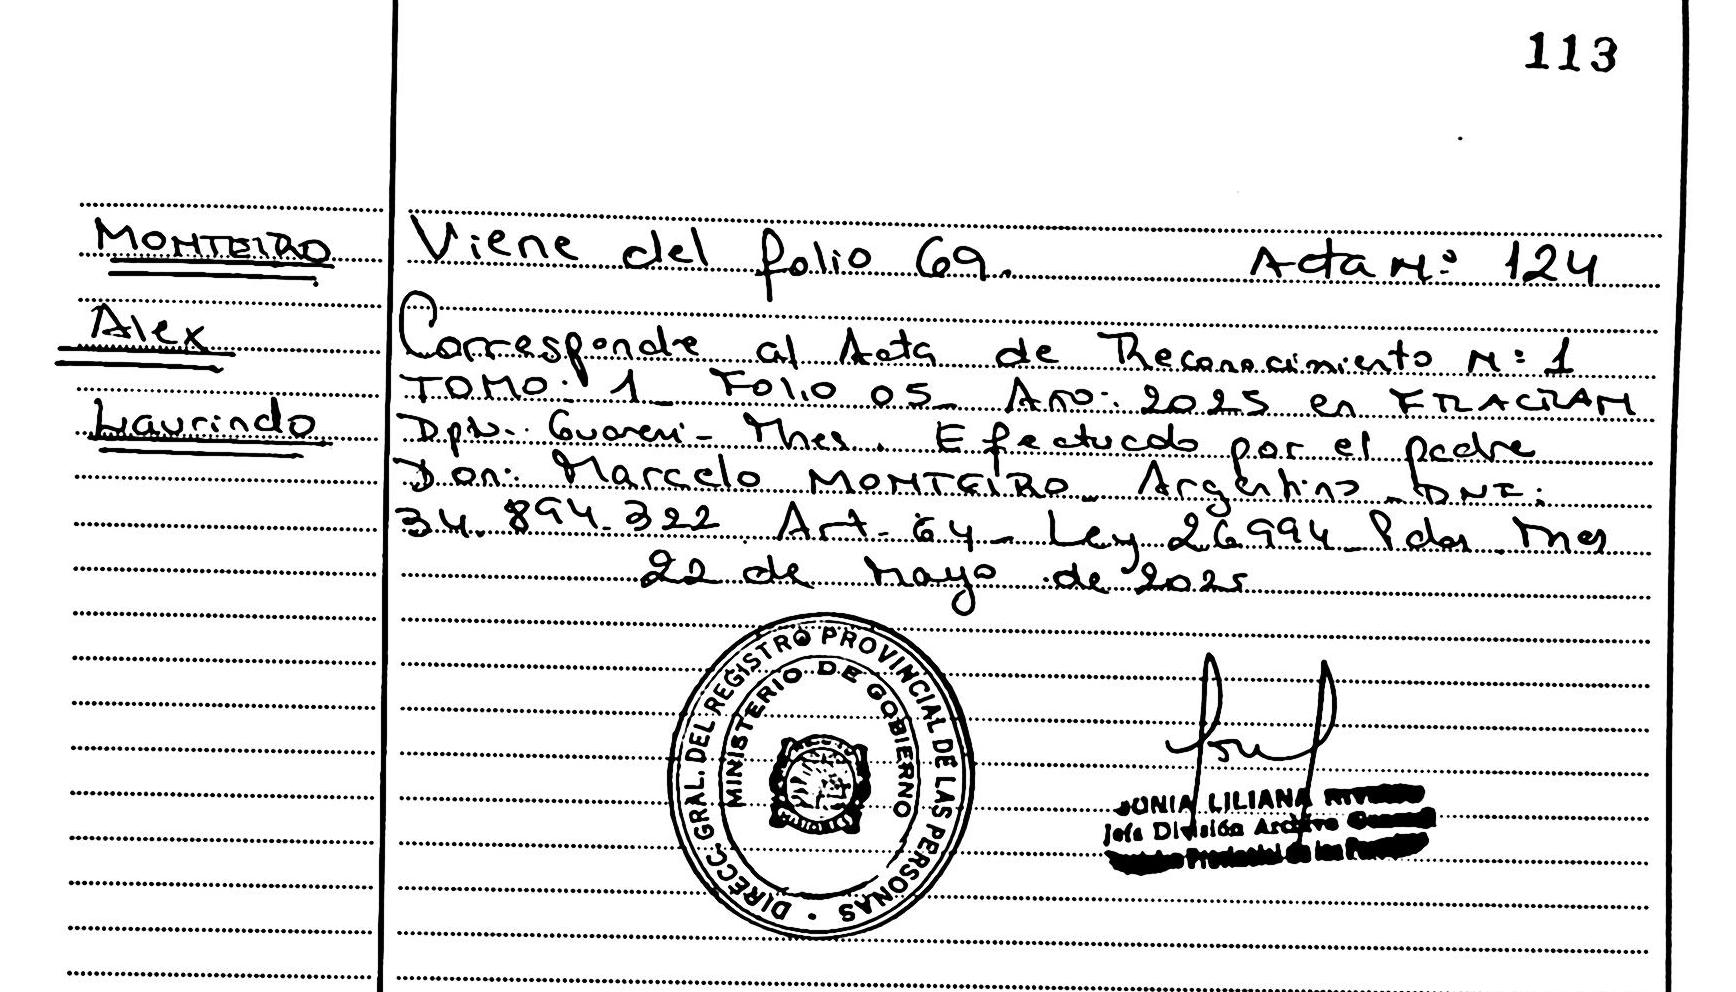 113
MONTEIRO
Alex
Laurindo
Viene del folio 69. Acta N.º 124
Corresponde al Acta de Reconocimiento Nº 1
TOMO: 1_ Folio 05_ Año: 2025 en FRACRAN
Dpto. Guarani - Mnes. Efectuado por el padre
Don: Marcelo MONTEIRO_ Argentino_ DNI:
34.894.322 Art- 64_ Ley 26994_ Pdas. Mnes
22 de Mayo de 2025
DIRECC. GRAL. DEL REGISTRO PROVINCIAL DE LAS PERSONAS
MINISTERIO DE GOBIERNO
MISIONES
JUNIA LILIANA
Jefa División Archivo General
Provincial de las